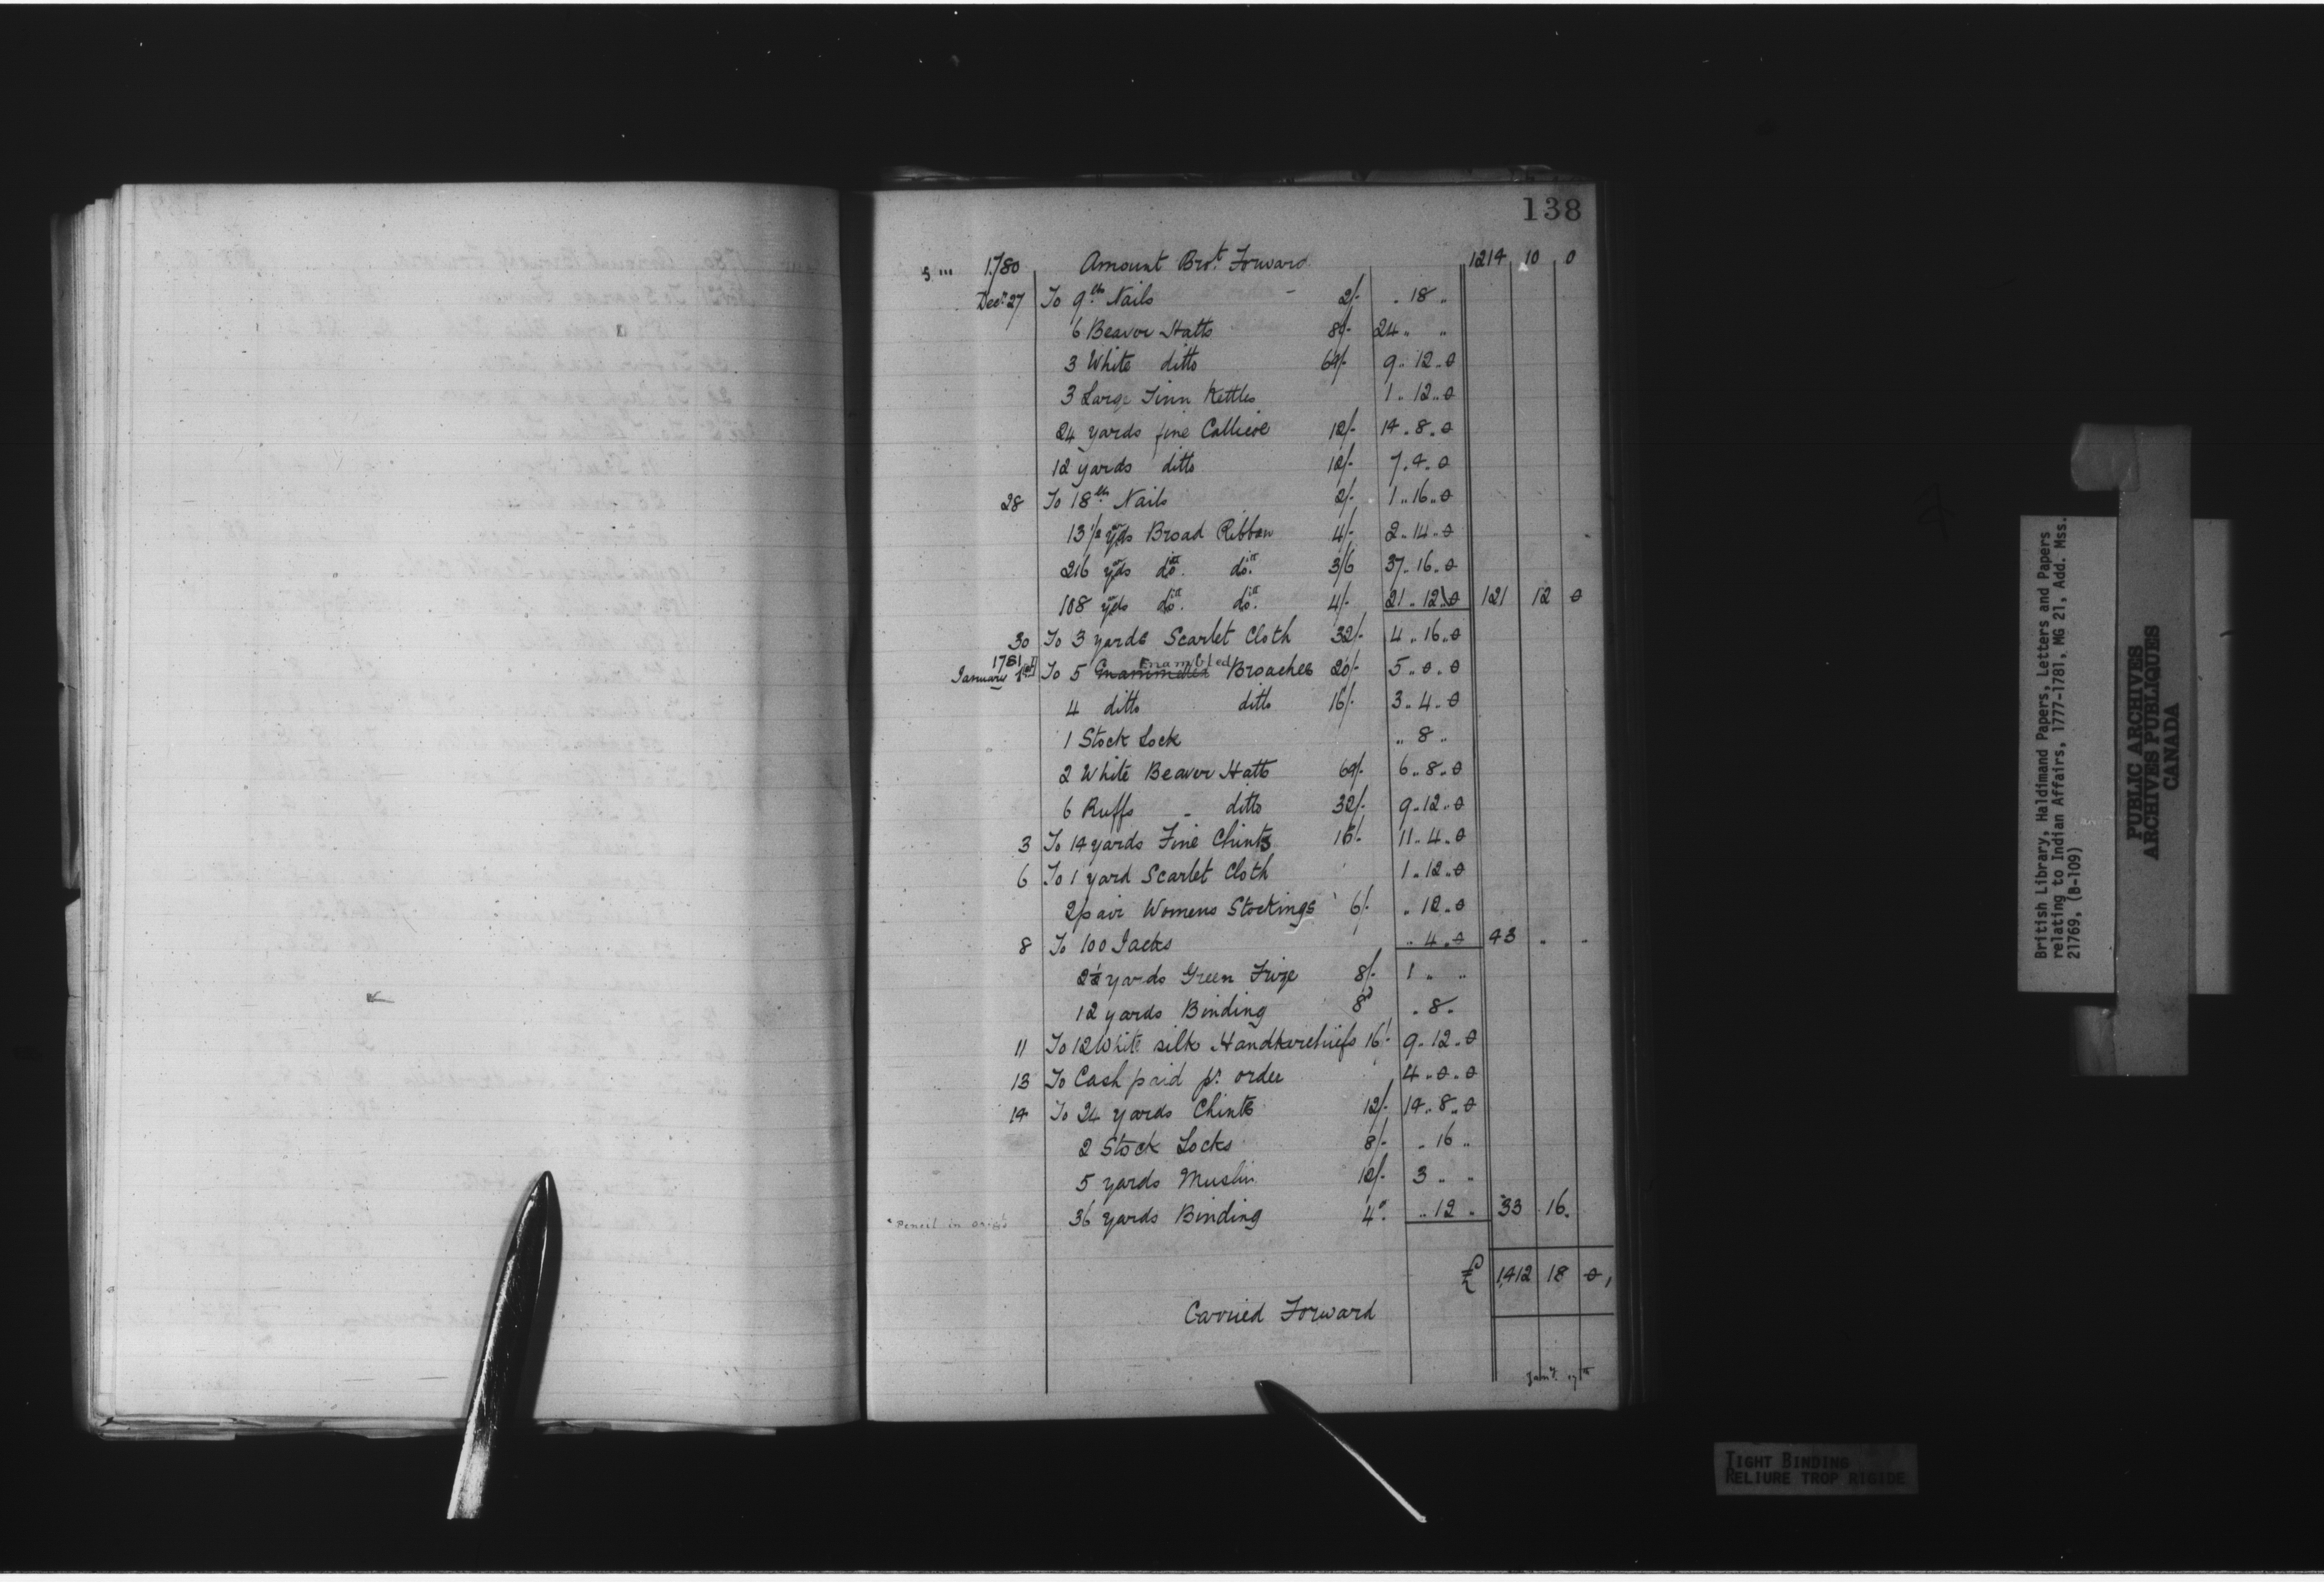 138
1780 Amount Bro.t Forward 1214 10 0
Decr 27 To 9 lbs Nails - 2/- " 18 "
6 Beaver Hatts 80/- 24 " "
3 White ditto 64/- 9 " 12 " 0
3 Large Tinn Kettles 1 " 12 " 0
24 yards fine Callicoe 12/- 14 " 8 " 0
12 yards ditto 12/- 7 " 4 " 0
28 To 18 lbs Nails 2/- 1 " 16 " 0
13 1/2 yds Broad Ribbon 4/- 2 " 14 " 0
216 yds do. do. 3/6 37 " 16 " 0
108 yds do. do. 4/- 21 " 12 " 0 121 12 0
30 To 3 yards Scarlet Cloth 32/- 4 " 16 " 0
1781
January 1st To 5 Enambled Broaches 20/- 5 " 0 " 0
4 ditto ditto 16/- 3 " 4 " 0
1 Stock Lock " 8 "
2 White Beaver Hatts 64/- 6 " 8 " 0
6 Ruffs - ditto 32/- 9 " 12 " 0
3 To 14 yards Fine Chints 16/- 11 " 4 " 0
6 To 1 yard Scarlet Cloth 1 " 12 " 0
2 pair Womens Stockings 6/- " 12 " 0
8 To 100 Tacks " 4 " 0 43 " "
2 1/2 yards Green Frize 8/- 1 " "
12 yards Binding 8d " 8 "
11 To 12 White silk Handkerchiefs 16/- 9 " 12 " 0
13 To Cash paid pr. order 4 " 0 " 0
14 To 24 yards Chints 12/- 14 " 8 " 0
2 Stock Locks 8/- " 16 "
5 yards Muslin 12/- 3 " "
* Pencil in orig'l 36 yards Binding 4d " 12 " 33 16 "
£ 1,412 18 0
Carried Forward
Jany. 17th
British Library, Haldimand Papers, Letters and Papers
relating to Indian Affairs, 1777-1781, MG 21, Add. Mss.
21769, (B-109)
PUBLIC ARCHIVES
ARCHIVES PUBLIQUES
CANADA
TIGHT BINDING
RELIURE TROP RIGIDE